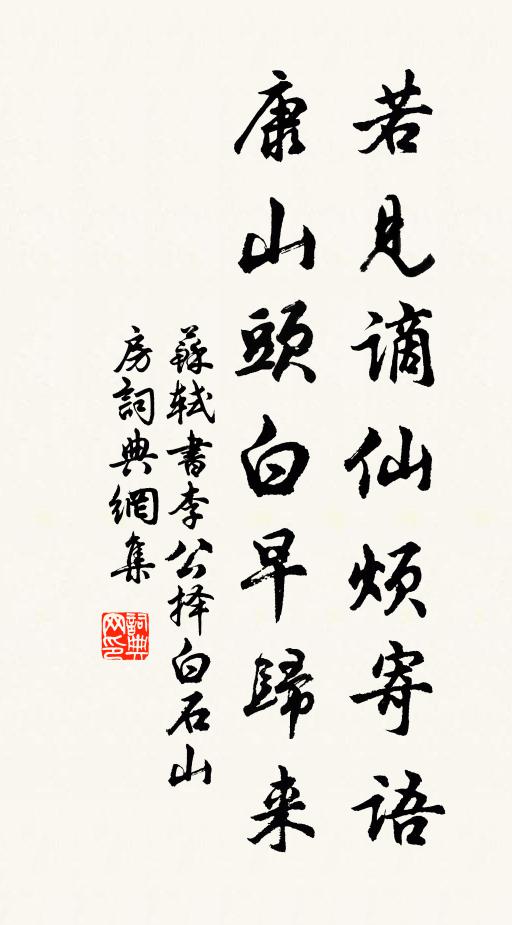 若見謫仙煩寄語
康山頭白早歸来
蘇軾書李公择白石山
房詞典網集
詞典
网印